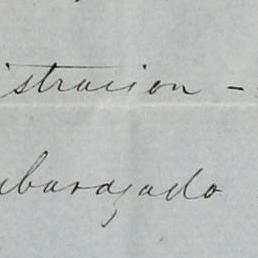 istracion -
barazado